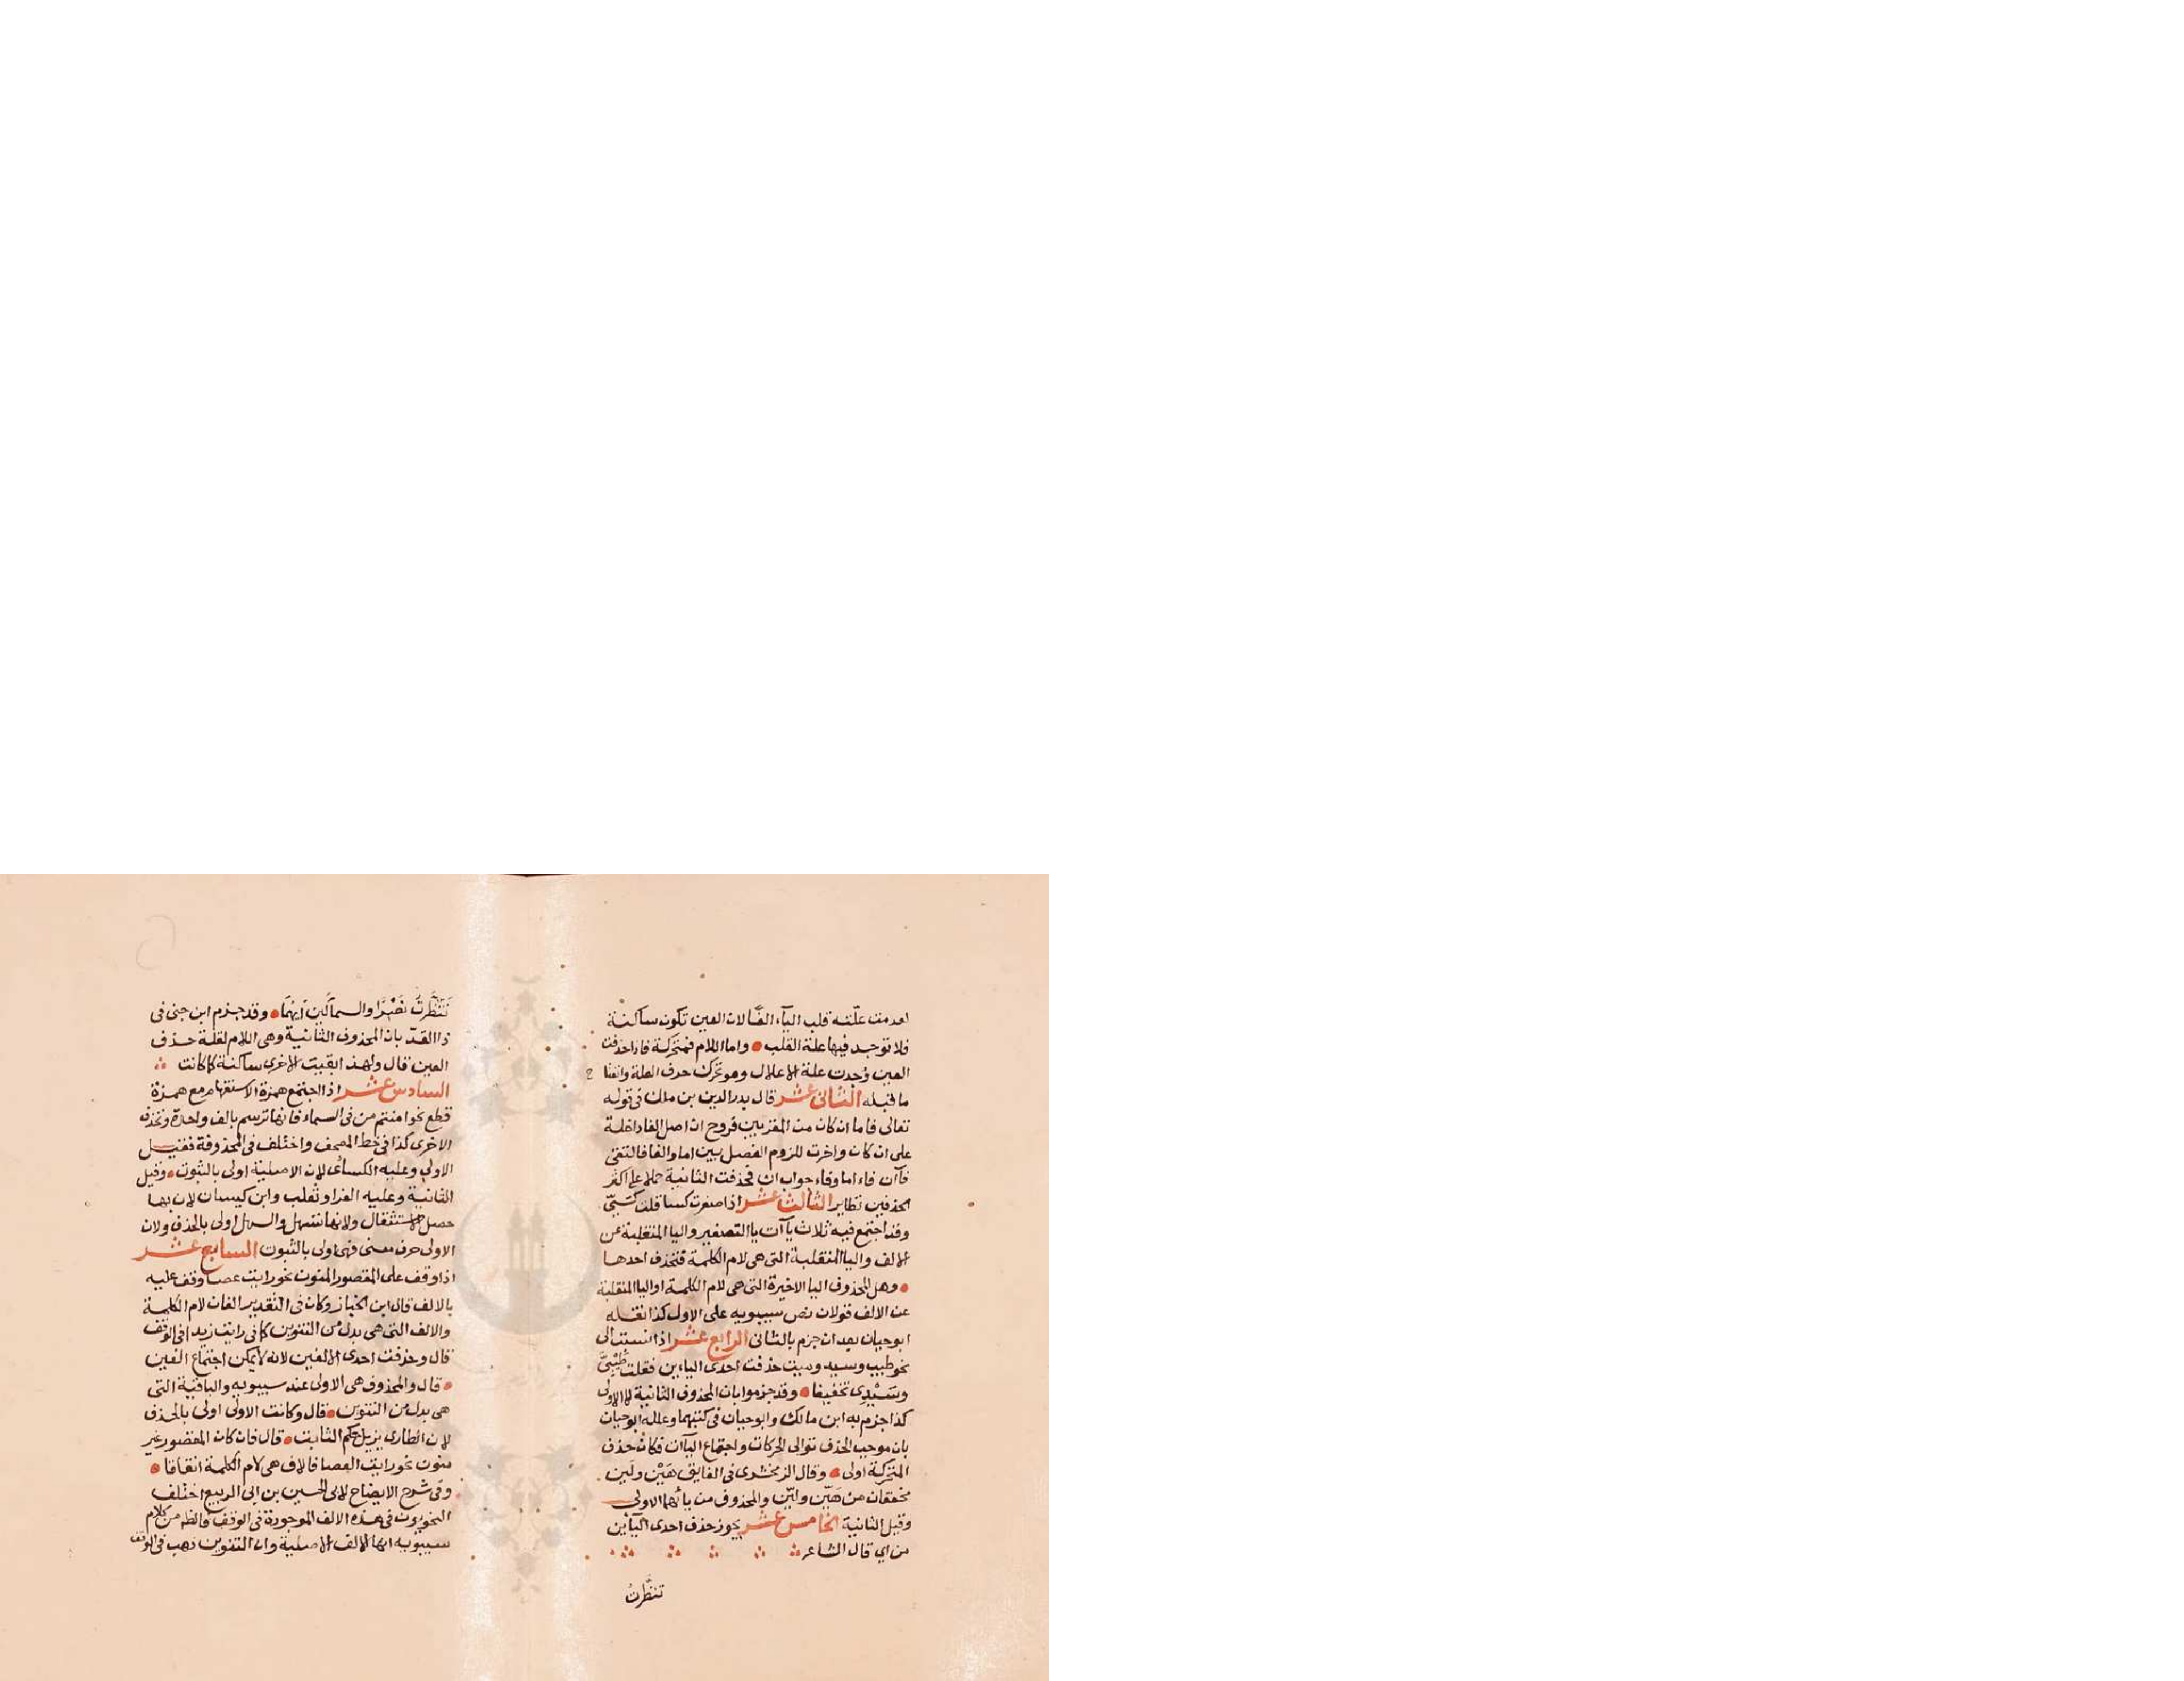 لعدمت علته قلب الياء الفا لان العين تكون ساكنة
فلا توجد فيها علة القلب واما اللام فمتحركة فاذا حذفت
العين وُجدت علة الاعلال وهو تحرك حرف العلة وانفتاح
ما قبله الثاني عشر قال بدر الدين بن مالك في قوله
تعالى فاما ان كان من المقربين فروح ان اصل الفا داخلة
على ان كان واخرت للزوم الفصل بين اما والفا فالتقى
فآن فاء اما وفاء جواب ان فحذفت الثانية حملا على اكثر
الحذفين نظاير الثالث عشر اذا صغرت كسا قلت كُسَيّ
وقد اجتمع فيه ثلاث يآآت يا التصغير واليا المنقلبة عن
الالف واليا المنقلبة التي هي لام الكلمة فتحذف احدها
وهل المحذوف اليا الاخيرة التي هي لام الكلمة او اليا المنقلبة
عن الالف قولان نص سيبويه على الاول كذا نقله
ابو حيان بعد ان جزم بالثاني الرابع عشر اذا نسبت الى
نحو طيب وسيد وميت حذفت احدى الياءين فقلت طَيْبِيّ
وسَيْدِي تخفيفا وقد جزموا بان المحذوف الثانية لا الاولى
كذا جزم به ابن مالك وابو حيان في كتبهما وعلله ابو حيان
بان موجب الحذف توالى الحركات واجتماع اليآات فكان حذف
المتحركة اولى وقال الزمخشرى في الفايق هَيْن ولَين
مخففان من هَيّن وليّن والمحذوف من يائهما الاولى
وقيل الثانية الخامس عشر يجوز حذف احدى اليأين
من اي قال الشاعر
تنظّرتُ
تَنَظَّرْتُ نَصْرًا والسماكَين ايْهُمَا وقد جزم ابن جنى في
ذا القد بان المحذوف الثانية وهي اللام لقلة حذف
العين قال ولهذا بقيت الاخرى ساكنة كما كانت
السادس عشر اذا اجتمع همزة الاستفهام مع همزة
قطع نحو امنتم من في السماء فانها ترسم بالف واحدة وتحذف
الاخرى كذا في خط المصحف واختلف في المحذوفة فقيل
الاولى وعليه الكسائى لان الاصلية اولى بالثبوت وقيل
الثانية وعليه الفرا وثعلب وابن كيسان لان بها
حصل الاستثقال ولانها تسهل والمسهل اولى بالحذف ولان
الاولى حرف معنى فهي اولى بالثبوت السابع عشر
اذا وقف على المقصور المنون نحو رايت عصا وقف عليه
بالالف قال ابن الخباز وكان في التقدير الفان لام الكلمة
والالف التي هي بدل من التنوين كما في رايت زيدا في الوقف
قال وحذفت احدى الالفين لانه لا يمكن اجتماع الفين
قال والمحذوف هي الاولى عند سيبويه والباقية التي
هي بدل من التنوين قال وكانت الاولى اولى بالحذف
لان الطارى يزيل حكم الثابت قال فان كان المقصور غير
منون نحو رايت العصا فالالف هي لام الكلمة اتفاقا
وفي شرح الايضاح لابي الحسين بن ابي الربيع اختلف
النحويون في هذه الالف الموجودة في الوقف والظ من كلام
سيبويه انها الالف الاصلية وان التنوين ذهب في الوقف